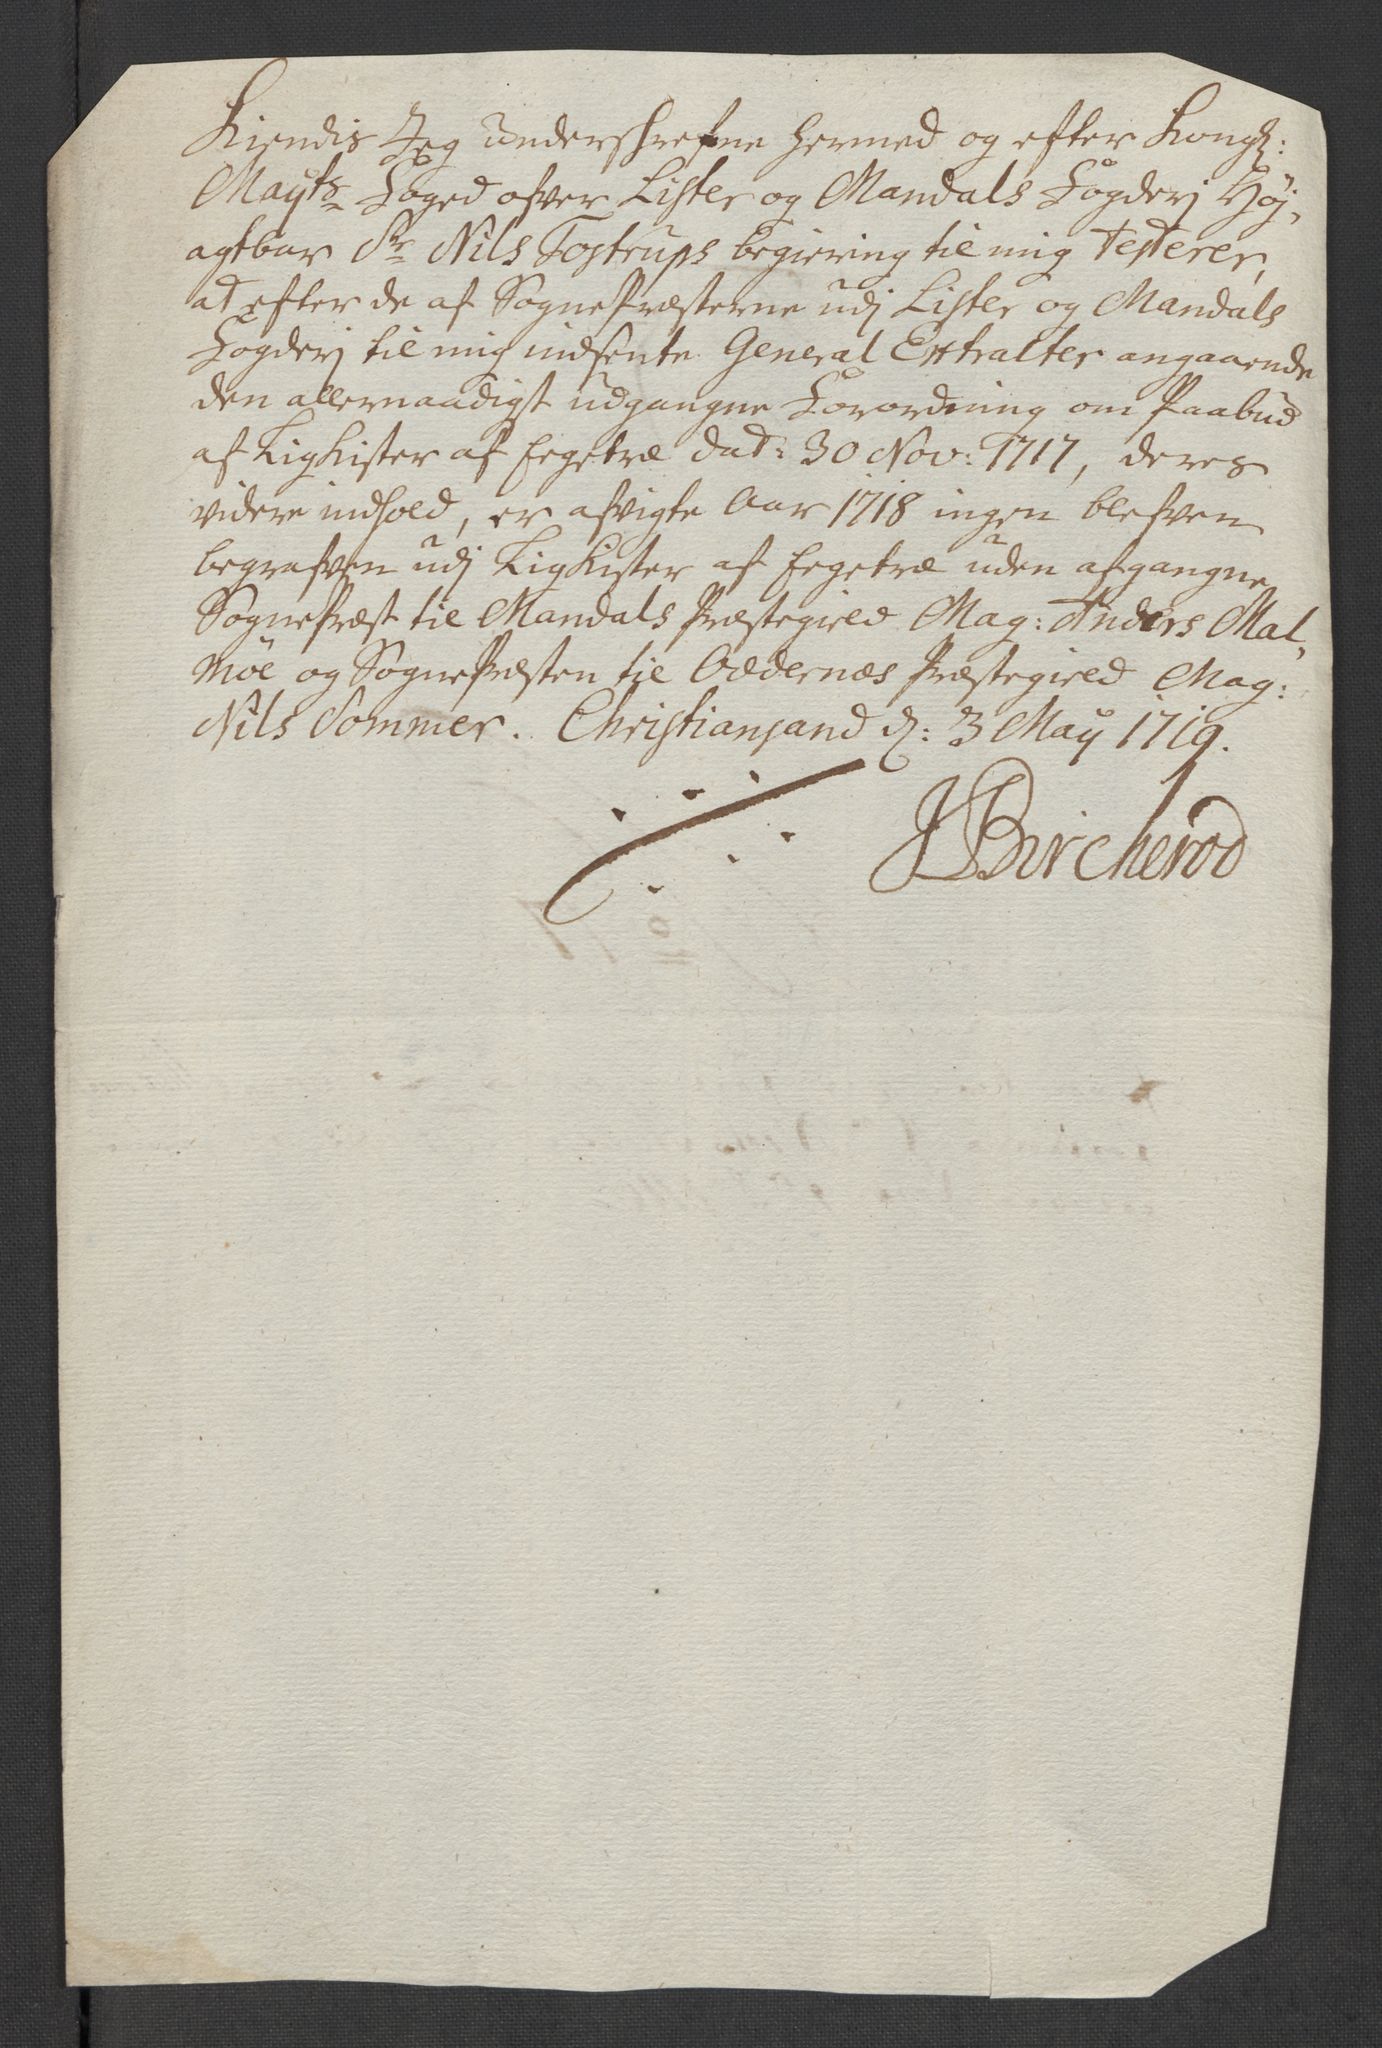 Kiendis Jeg Underschrefne hermed og efter Kongl:
Mayts Foged ofver Lister og Mandals Fogderj Høj,
agtbar Sr Nils Tostrups begiering til mig Testerer,
at efter de af SognePræsterne udj Lister og Mandals
Fogderj til mig indsente General Extracter angaaende
den allernaadigst udgangne Forordning om Paabud
af LigKister af Eegetræ dat: 30 Nov: 1717, deres
videre indhold, er afvigte Aar 1718 ingen blefven
begrafven udj LigKister af Eegetræ uden afgangne
SognePræst til Mandals Præstegield Mag: Anders Mal,
möe og SognePræsten til Oddernæs Præstegield Mag:
Nils Sommer. Christiansand d: 3 May 1719.
JBircherod